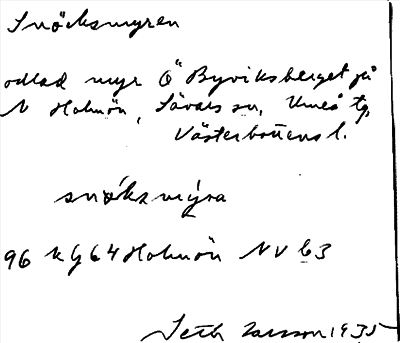 Snöcksmyren
odlad myr O Byviksberget på
N Holmön, Sävars sn, Umeå tg,
Västerbottens l.
snö́ksmy̌ra
96 kg 64 Holmön NV b3
Seth Larsson 1935